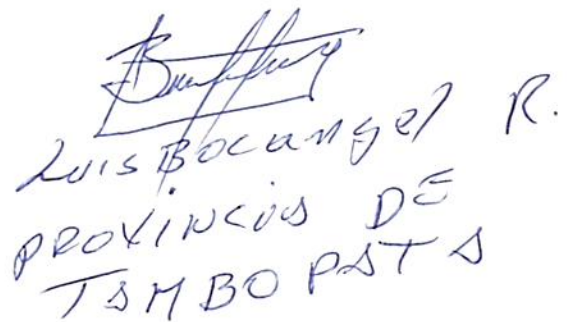 Luis Bocangel R.
PROVINCIA DE
TAMBOPATA